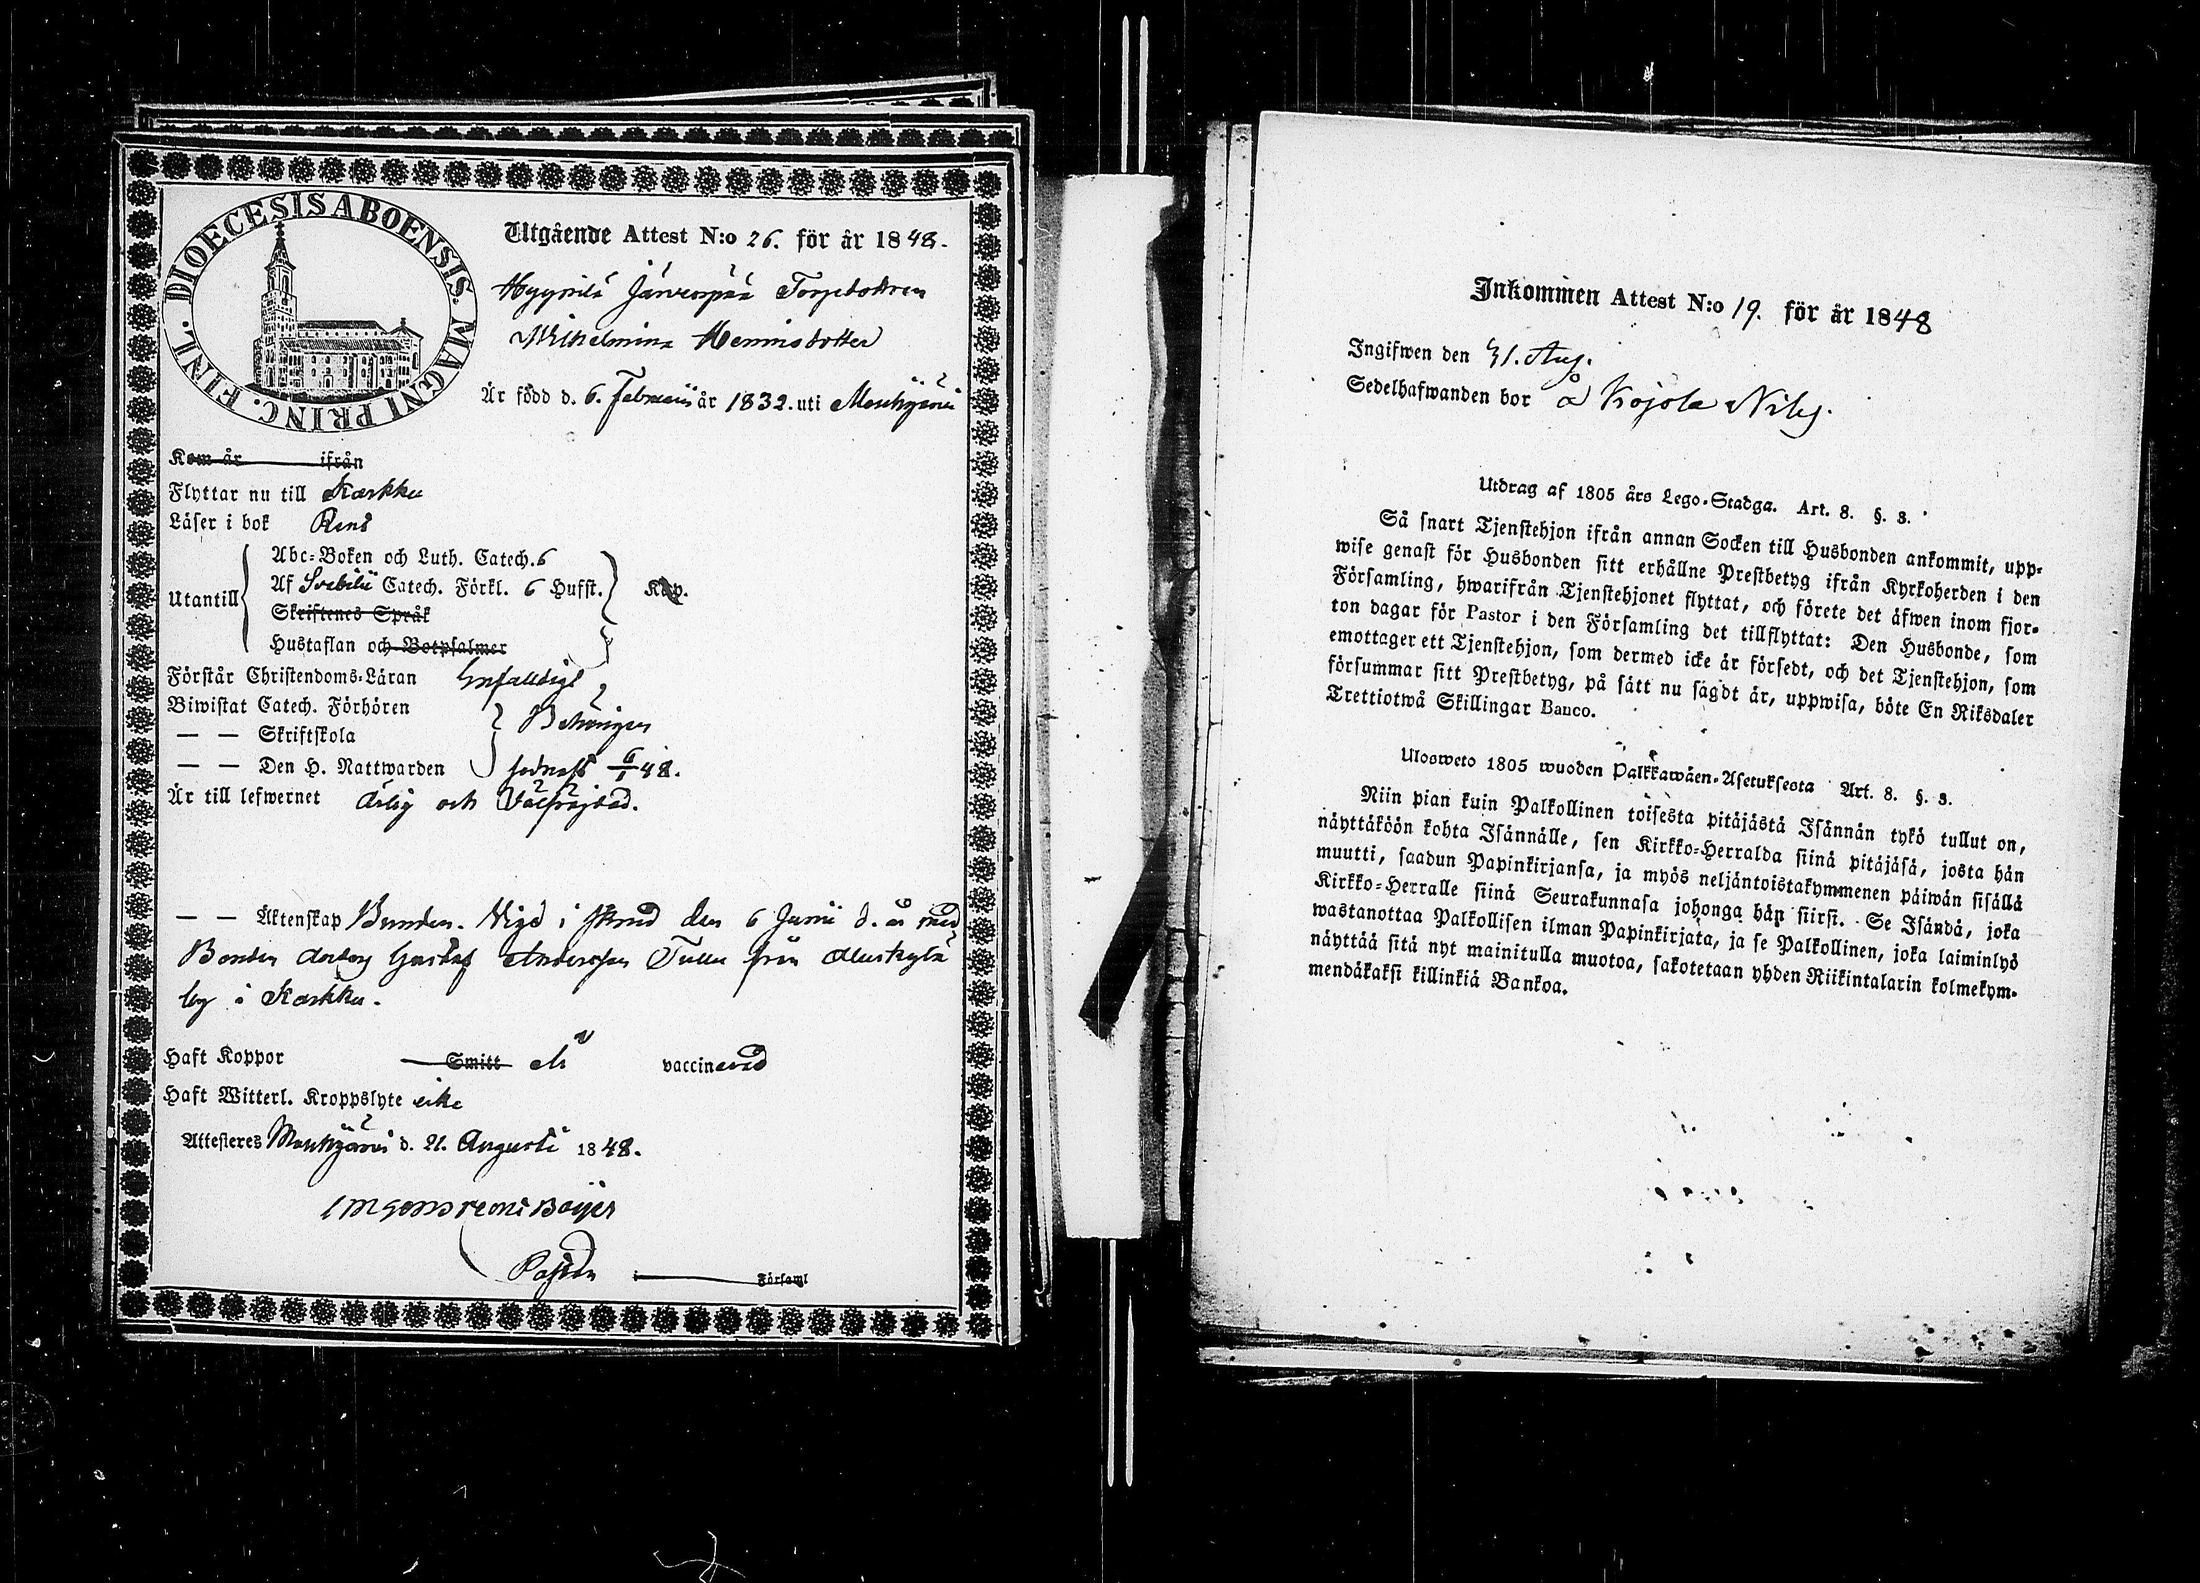 DIOECESIS ABOENSIS. MAGNI PRINC. FINL.
Utgående Attest N:o 26. för år 1848.
Hyynilä Järvenpää Torpdottren
Wilhelmina Henrisdotter
Är född d. 6. Februarii år 1832. uti Mouhijärvi
Kom år ifrån
Flyttar nu till Karkku
Läser i bok Rent
Utantill
Abc-Boken och Luth. Catech. 6
Af Svebilii Catech. Förkl. 6 Hufst.
Skriftenes Språk
Hustaflan och Botpsalmer
Kap.
Förstår Christendoms-Läran Enfalldigt
Biwistat Catech. Förhören
— — Skriftskola
Behörigen
— — Den H. Nattwarden sednast 6/1 48.
Är till lefwernet ärlig och Välfräjdad.
— — Äktenskap Bunden. Vigd i stånd den 6 Junii d. å med
Bonden Gustaf Andersson Tulu från Aluskylä
by i Karkku.
Haft Koppor Smitt vaccinerad
Haft Witterl. Kroppslyte icke
Attesteres Mouhijärvi d. 21. Augusti 1848.
Pastor i Församl
Inkommen Attest N:o 19. för år 1848
Ingifwen den 31. Aug.
Sedelhafwanden bor å Kojola Niley.
Utdrag af 1805 års Lego-Stadga. Art. 8. §. 3.
Så snart Tjenstehjon ifrån annan Socken till Husbonden ankommit, upp-
wise genast för Husbonden sitt erhållne Prestbetyg ifrån Kyrkoherden i den
Församling, hwarifrån Tjenstehjonet flyttat, och förete det äfwen inom fjor-
ton dagar för Pastor i den Församling det tillflyttat: Den Husbonde, som
emottager ett Tjenstehjon, som dermed icke är försedt, och det Tjenstehjon, som
försummar sitt Prestbetyg, på sätt nu sagdt är, uppwisa, böte En Riksdaler
Trettiotwå Skillingar Banco.
Ulosweto 1805 wuoden Palkkawäen-Asetuksesta Art. 8. §. 3.
Niin pian kuin Palkollinen toisesta pitäjästä Isännän tykö tullut on,
näyttäköön kohta Isännälle, sen Kirkko-Herralda siinä pitäjäsä, josta hän
muutti, saadun Papinkirjansa, ja myös neljäntoistakymmenen päiwän sisällä
Kirkko-Herralle siinä Seurakunnasa johonga hän siirsi. Se Isändä, joka
wastanottaa Palkollisen ilman Papinkirjata, ja se Palkollinen, joka laiminlyö
näyttää sitä nyt mainitulla muotoa, sakotetaan yhden Riikintalarin kolmekym-
mendäkaksi killinkiä Bankoa.